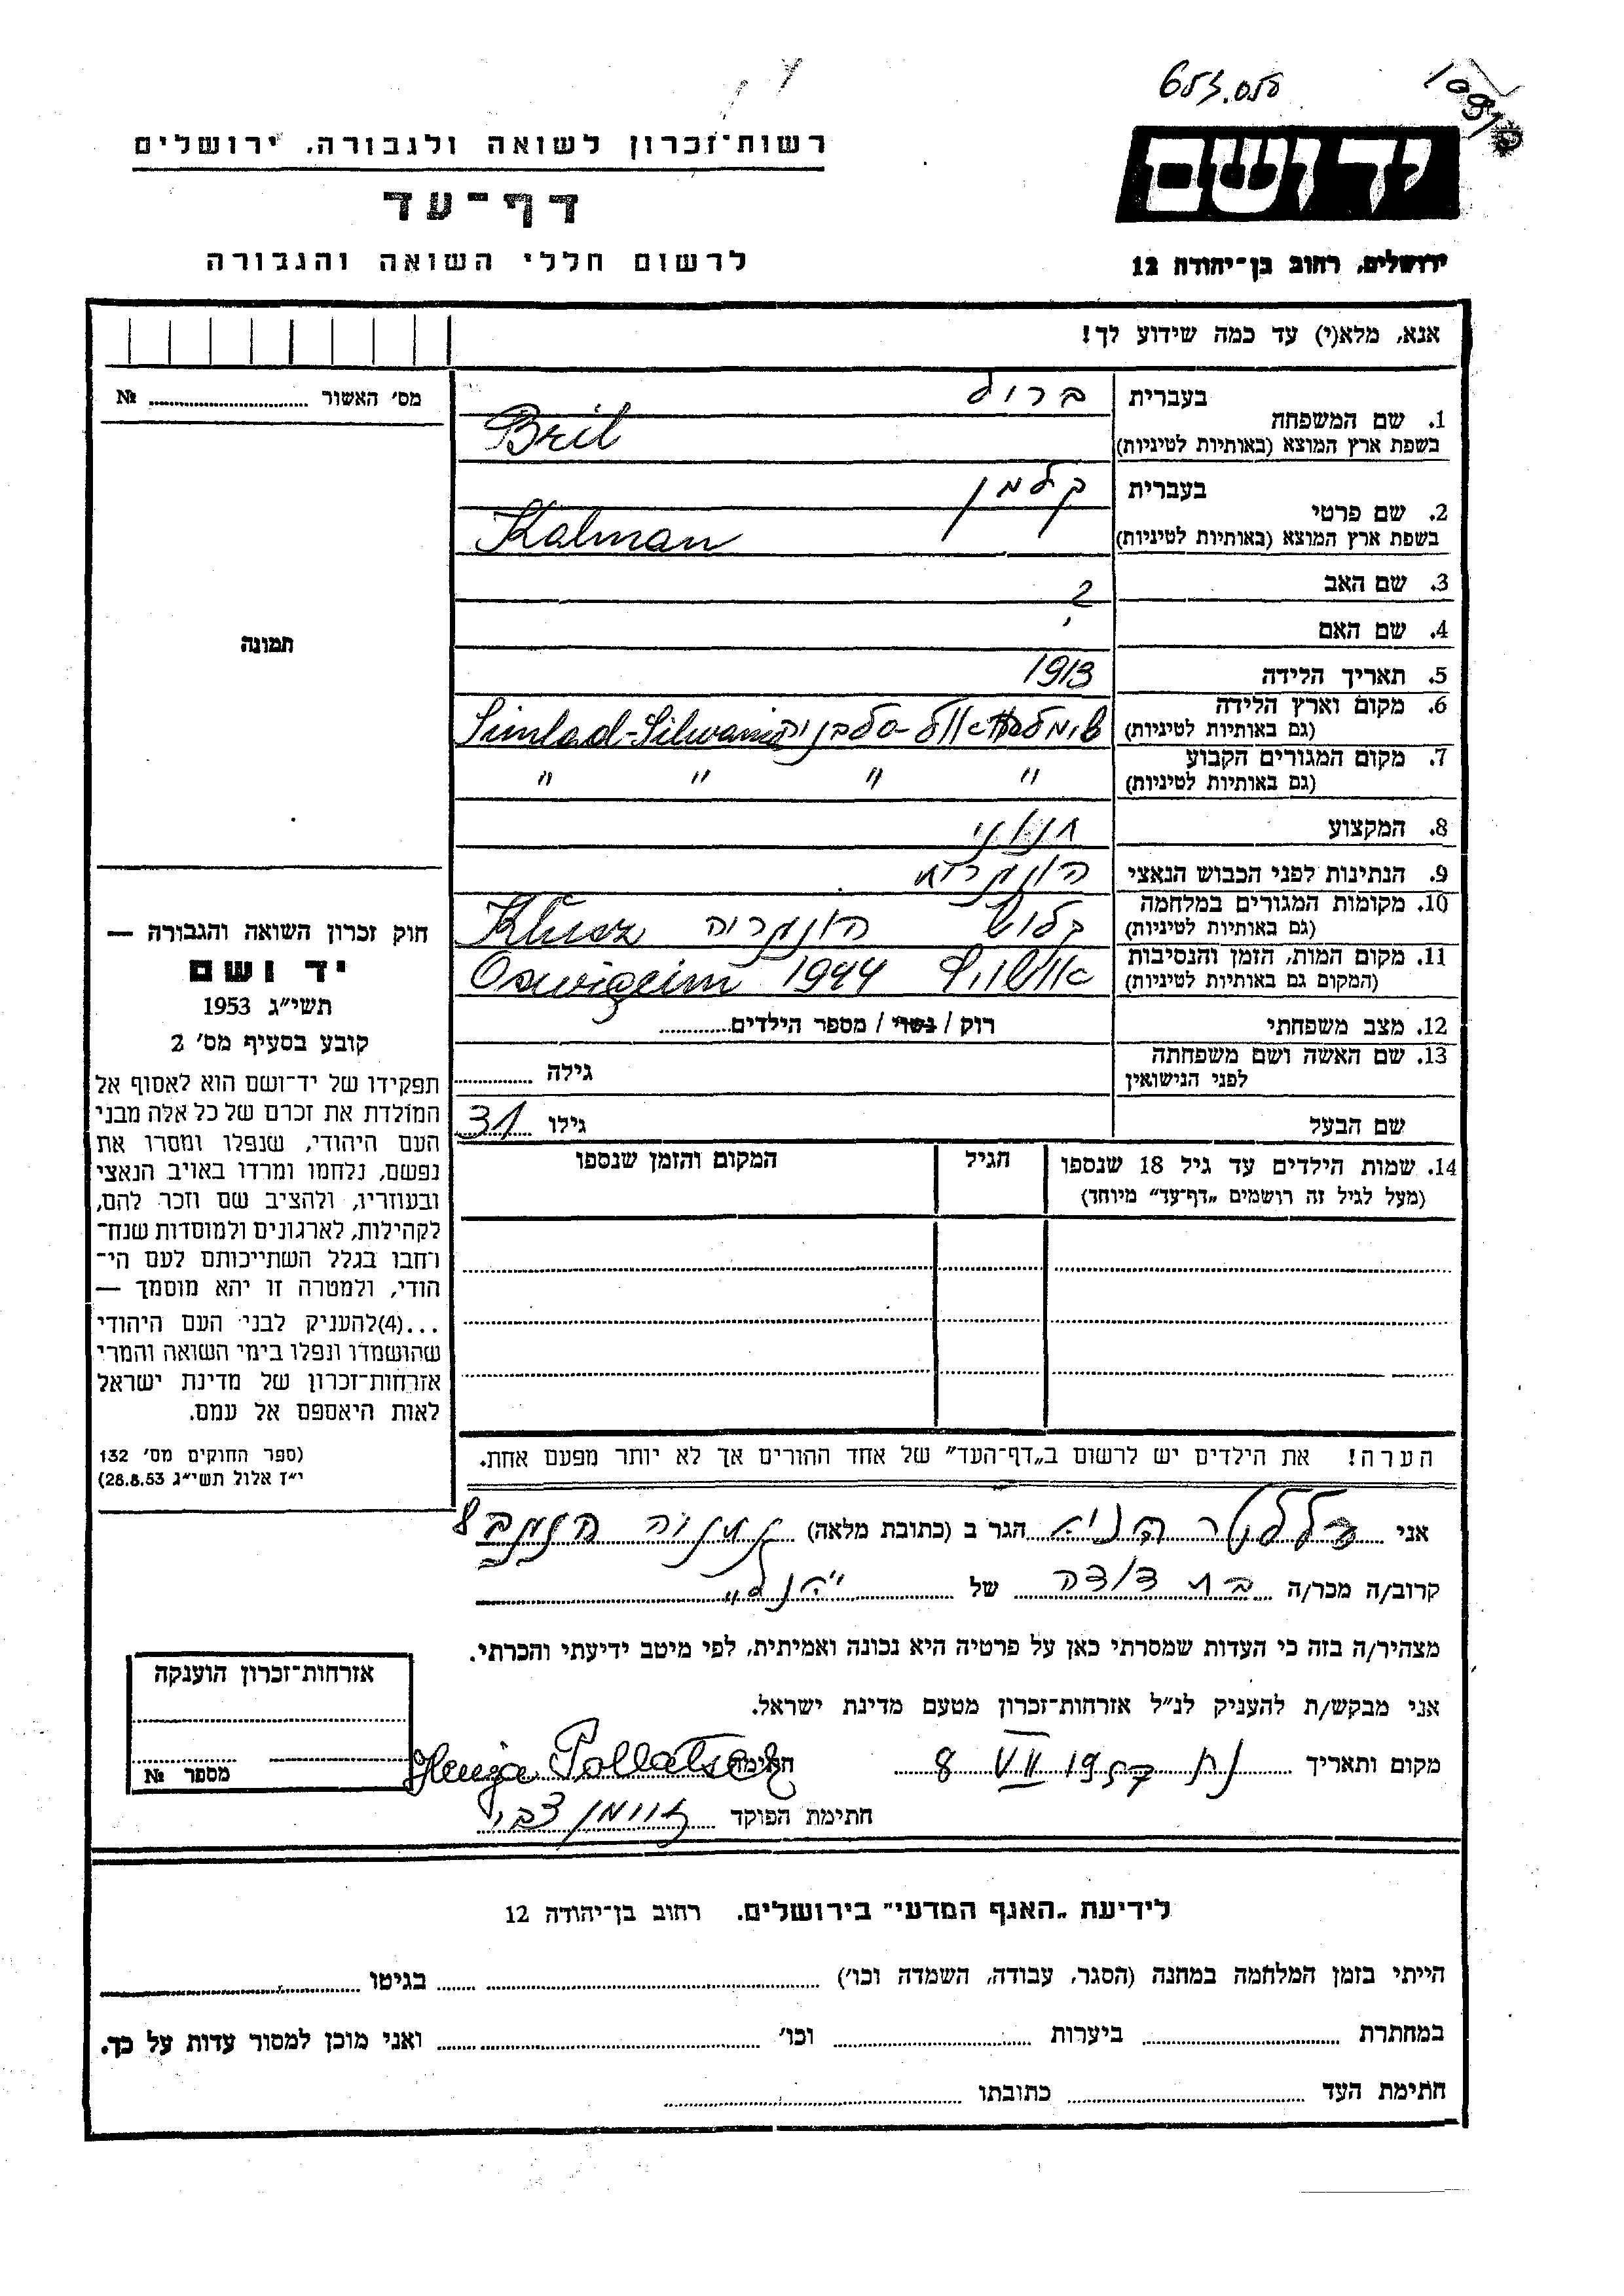 653.058
יד ושם
ירושלים, רחוב בן־יהודה 12
רשות־זכרון לשואה ולגבורה, ירושלים
דף־עד
לרשום חללי השואה והגבורה
אנא, מלא(י) עד כמה שידוע לך!
מס׳ האשור № 
1. שם המשפחה
בעברית
בשפת ארץ המוצא (באותיות לטיניות)
Bril
2. שם פרטי
בעברית קלמן
בשפת ארץ המוצא (באותיות לטיניות)
Kalman
3. שם האב ?
4. שם האם
5. תאריך הלידה 1913
6. מקום וארץ הלידה
(גם באותיות לטיניות)
7. מקום המגורים הקבוע
(גם באותיות לטיניות) " " " "
8. המקצוע חנוני
9. הנתינות לפני הכבוש הנאצי
10. מקומות המגורים במלחמה
(גם באותיות לטיניות) קלוש הונגריה Klusz
11. מקום המות, הזמן והנסיבות
(המקום גם באותיות לטיניות) אושויץ 1944
12. מצב משפחתי רוק / נשוי / מספר הילדים
13. שם האשה ושם משפחתה
לפני הנישואין
גילה
שם הבעל
גילו 31
14. שמות הילדים עד גיל 18 שנספו
(מעל לגיל זה רושמים „דף־עד״ מיוחד)
הגיל
המקום והזמן שנספו
הערה! את הילדים יש לרשום ב„דף־העד״ של אחד ההורים אך לא יותר מפעם אחת.
תמונה
חוק זכרון השואה והגבורה —
יד ושם
תשי״ג 1953
קובע בסעיף מס׳ 2
תפקידו של יד־ושם הוא לאסוף אל
המולדת את זכרם של כל אלה מבני
העם היהודי, שנפלו ומסרו את
נפשם, נלחמו ומרדו באויב הנאצי
ובעוזריו, ולהציב שם וזכר להם,
לקהילות, לארגונים ולמוסדות שנח־
רחבו בגלל השתייכותם לעם הי־
הודי, ולמטרה זו יהא מוסמך —
...(4)להעניק לבני העם היהודי
שהושמדו ונפלו בימי השואה והמרי
אזרחות־זכרון של מדינת ישראל
לאות היאספם אל עמם.
(ספר החוקים מס׳ 132
י״ז אלול תשי״ג 28.8.53)
אני הגר ב (כתובת מלאה)
קרוב/ה מכר/ה בת דודה של "הנ"ל"
מצהיר/ה בזה כי העדות שמסרתי כאן על פרטיה היא נכונה ואמיתית, לפי מיטב ידיעתי והכרתי.
אני מבקש/ת להעניק לנ״ל אזרחות־זכרון מטעם מדינת ישראל.
מקום ותאריך 8 VII חתימה Henja Pollatsek
חתימת הפוקד
אזרחות־זכרון הוענקה
מספר №
לידיעת „האגף המדעי״ בירושלים. רחוב בן־יהודה 12
הייתי בזמן המלחמה במחנה (הסגר, עבודה, השמדה וכו׳) בגיטו
במחתרת ביערות וכו׳ ואני מוכן למסור עדות על כך.
חתימת העד כתובתו